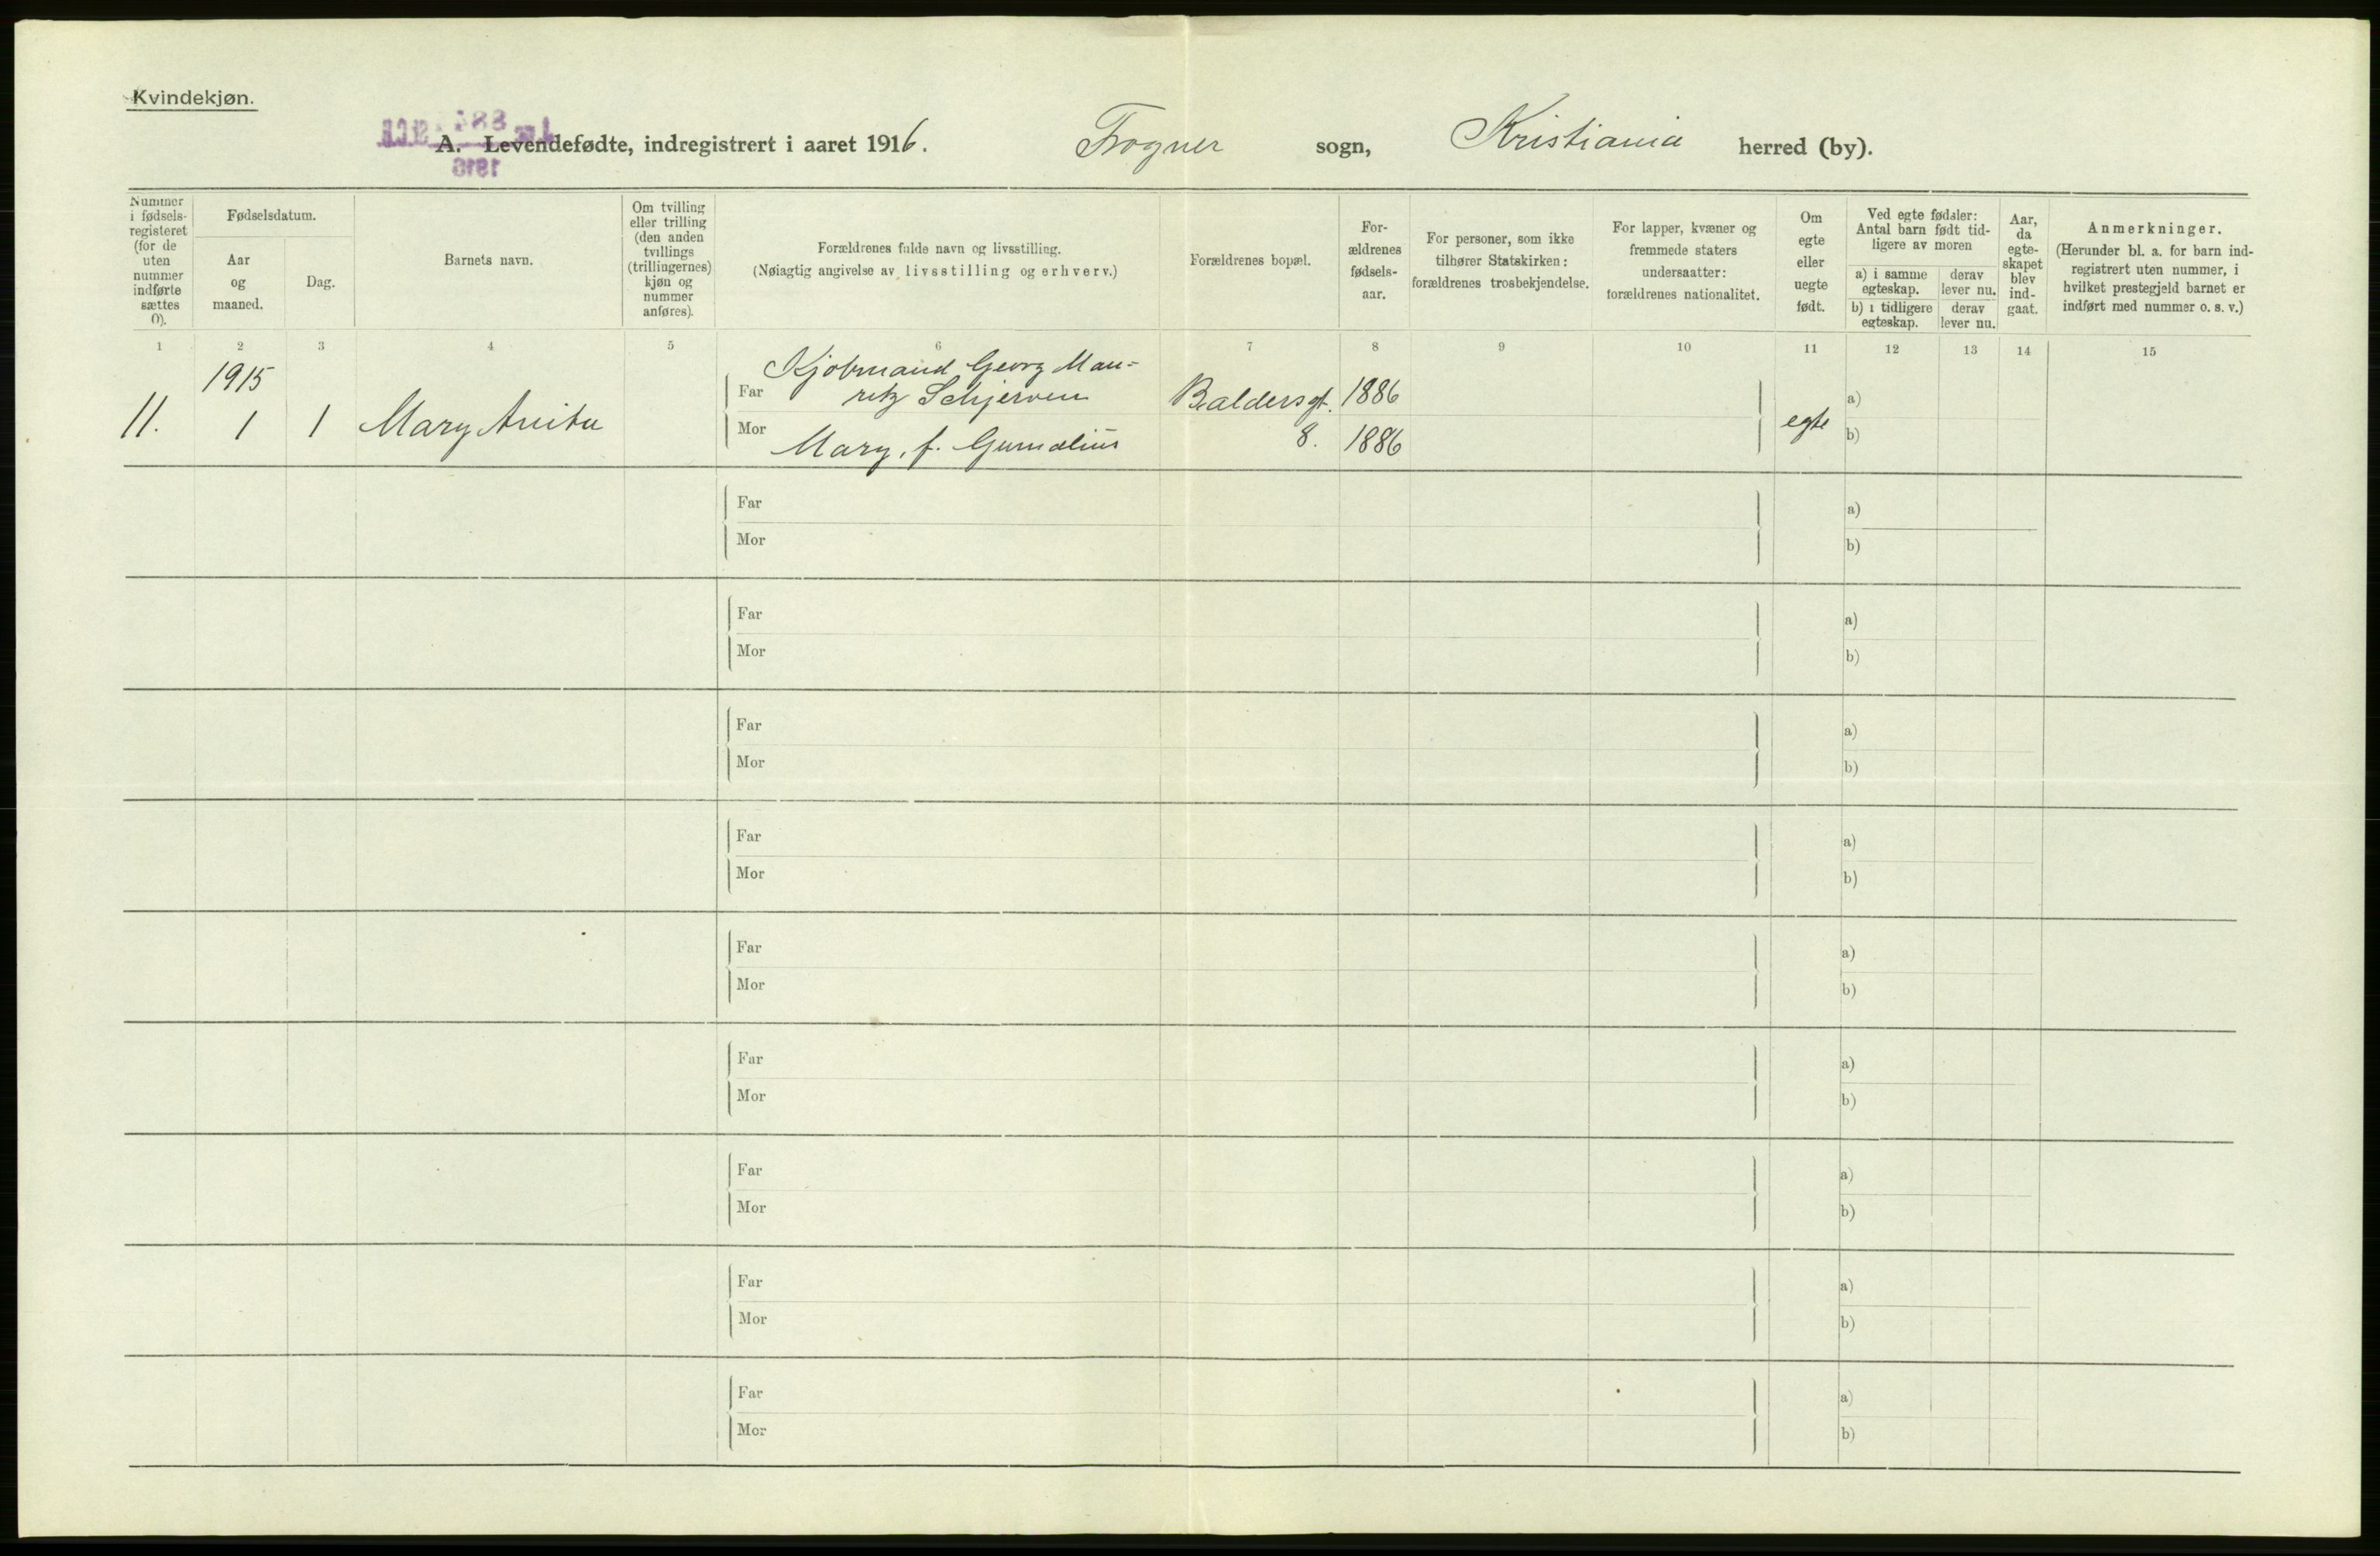 Kvindekjøn.
A. Levendefødte, indregistrert i aaret 1916. Frogner sogn, Kristiania herred (by).
Nummer i fødsels-registeret (for de uten nummer indførte sættes 0).
Fødselsdatum.
Aar og maaned.
Dag.
Barnets navn.
Om tvilling eller trilling (den anden tvillings (trillingernes) kjøn og nummer anføres).
Forældrenes fulde navn og livsstilling.
(Nøiagtig angivelse av livsstilling og erhverv.)
Forældrenes bopæl.
For-ældrenes fødsels-aar.
For personer, som ikke tilhører Statskirken: forældrenes trosbekjendelse.
For lapper, kvæner og fremmede staters undersaatter: forældrenes nationalitet.
Om egte eller uegte født.
Ved egte fødsler: Antal barn født tid-ligere av moren
a) i samme egteskap.
derav lever nu.
b) i tidligere egteskap.
derav lever nu.
Aar, da egte-skapet blev ind-gaat.
Anmerkninger.
(Herunder bl. a. for barn ind-registrert uten nummer, i hvilket prestegjeld barnet er indført med nummer o. s. v.)
1 2 3 4 5 6 7 8 9 10 11 12 13 14 15
1915
Kjøbmand Georg Mau-
Far ritz Schjerven Baldersgt. 1886 a)
11. 1 1 Mary Anita egte
Mor Mary, f. Gumælius 8. 1886 b)
Far a)
Mor b)
Far a)
Mor b)
Far a)
Mor b)
Far a)
Mor b)
Far a)
Mor b)
Far a)
Mor b)
Far a)
Mor b)
Far a)
Mor b)
Far a)
Mor b)